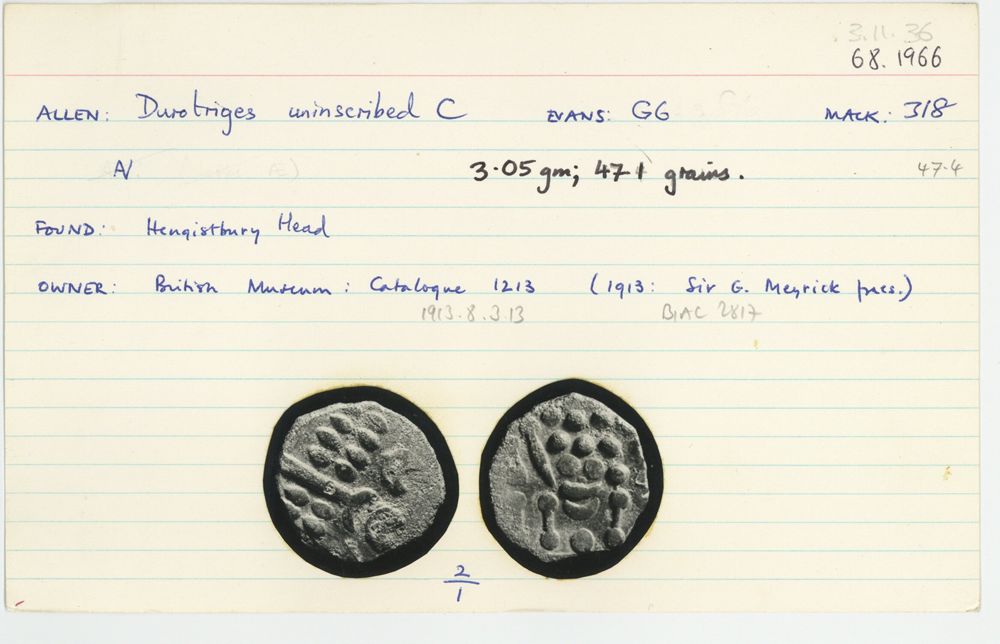 3.11.36
68.1966
ALLEN: Durotriges uninscribed C EVANS: G6 MACK: 318
3.05 gm; 47.1 grains. 47.4
FOUND: Hengistbury Head
OWNER: British Museum: Catalogue 1213 (1913: Sir G. Meyrick pres.)
1913.8.3.13 BIAC 2817
2
1